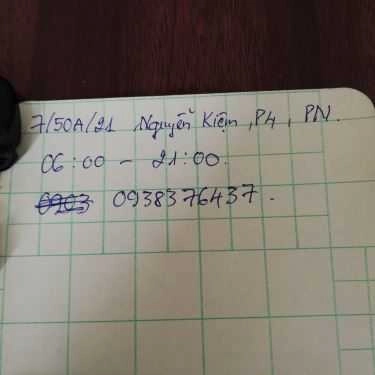 7/50A/21 Nguyễn Kiệm, P4, PN.
06:00 - 21:00.
0938376437.